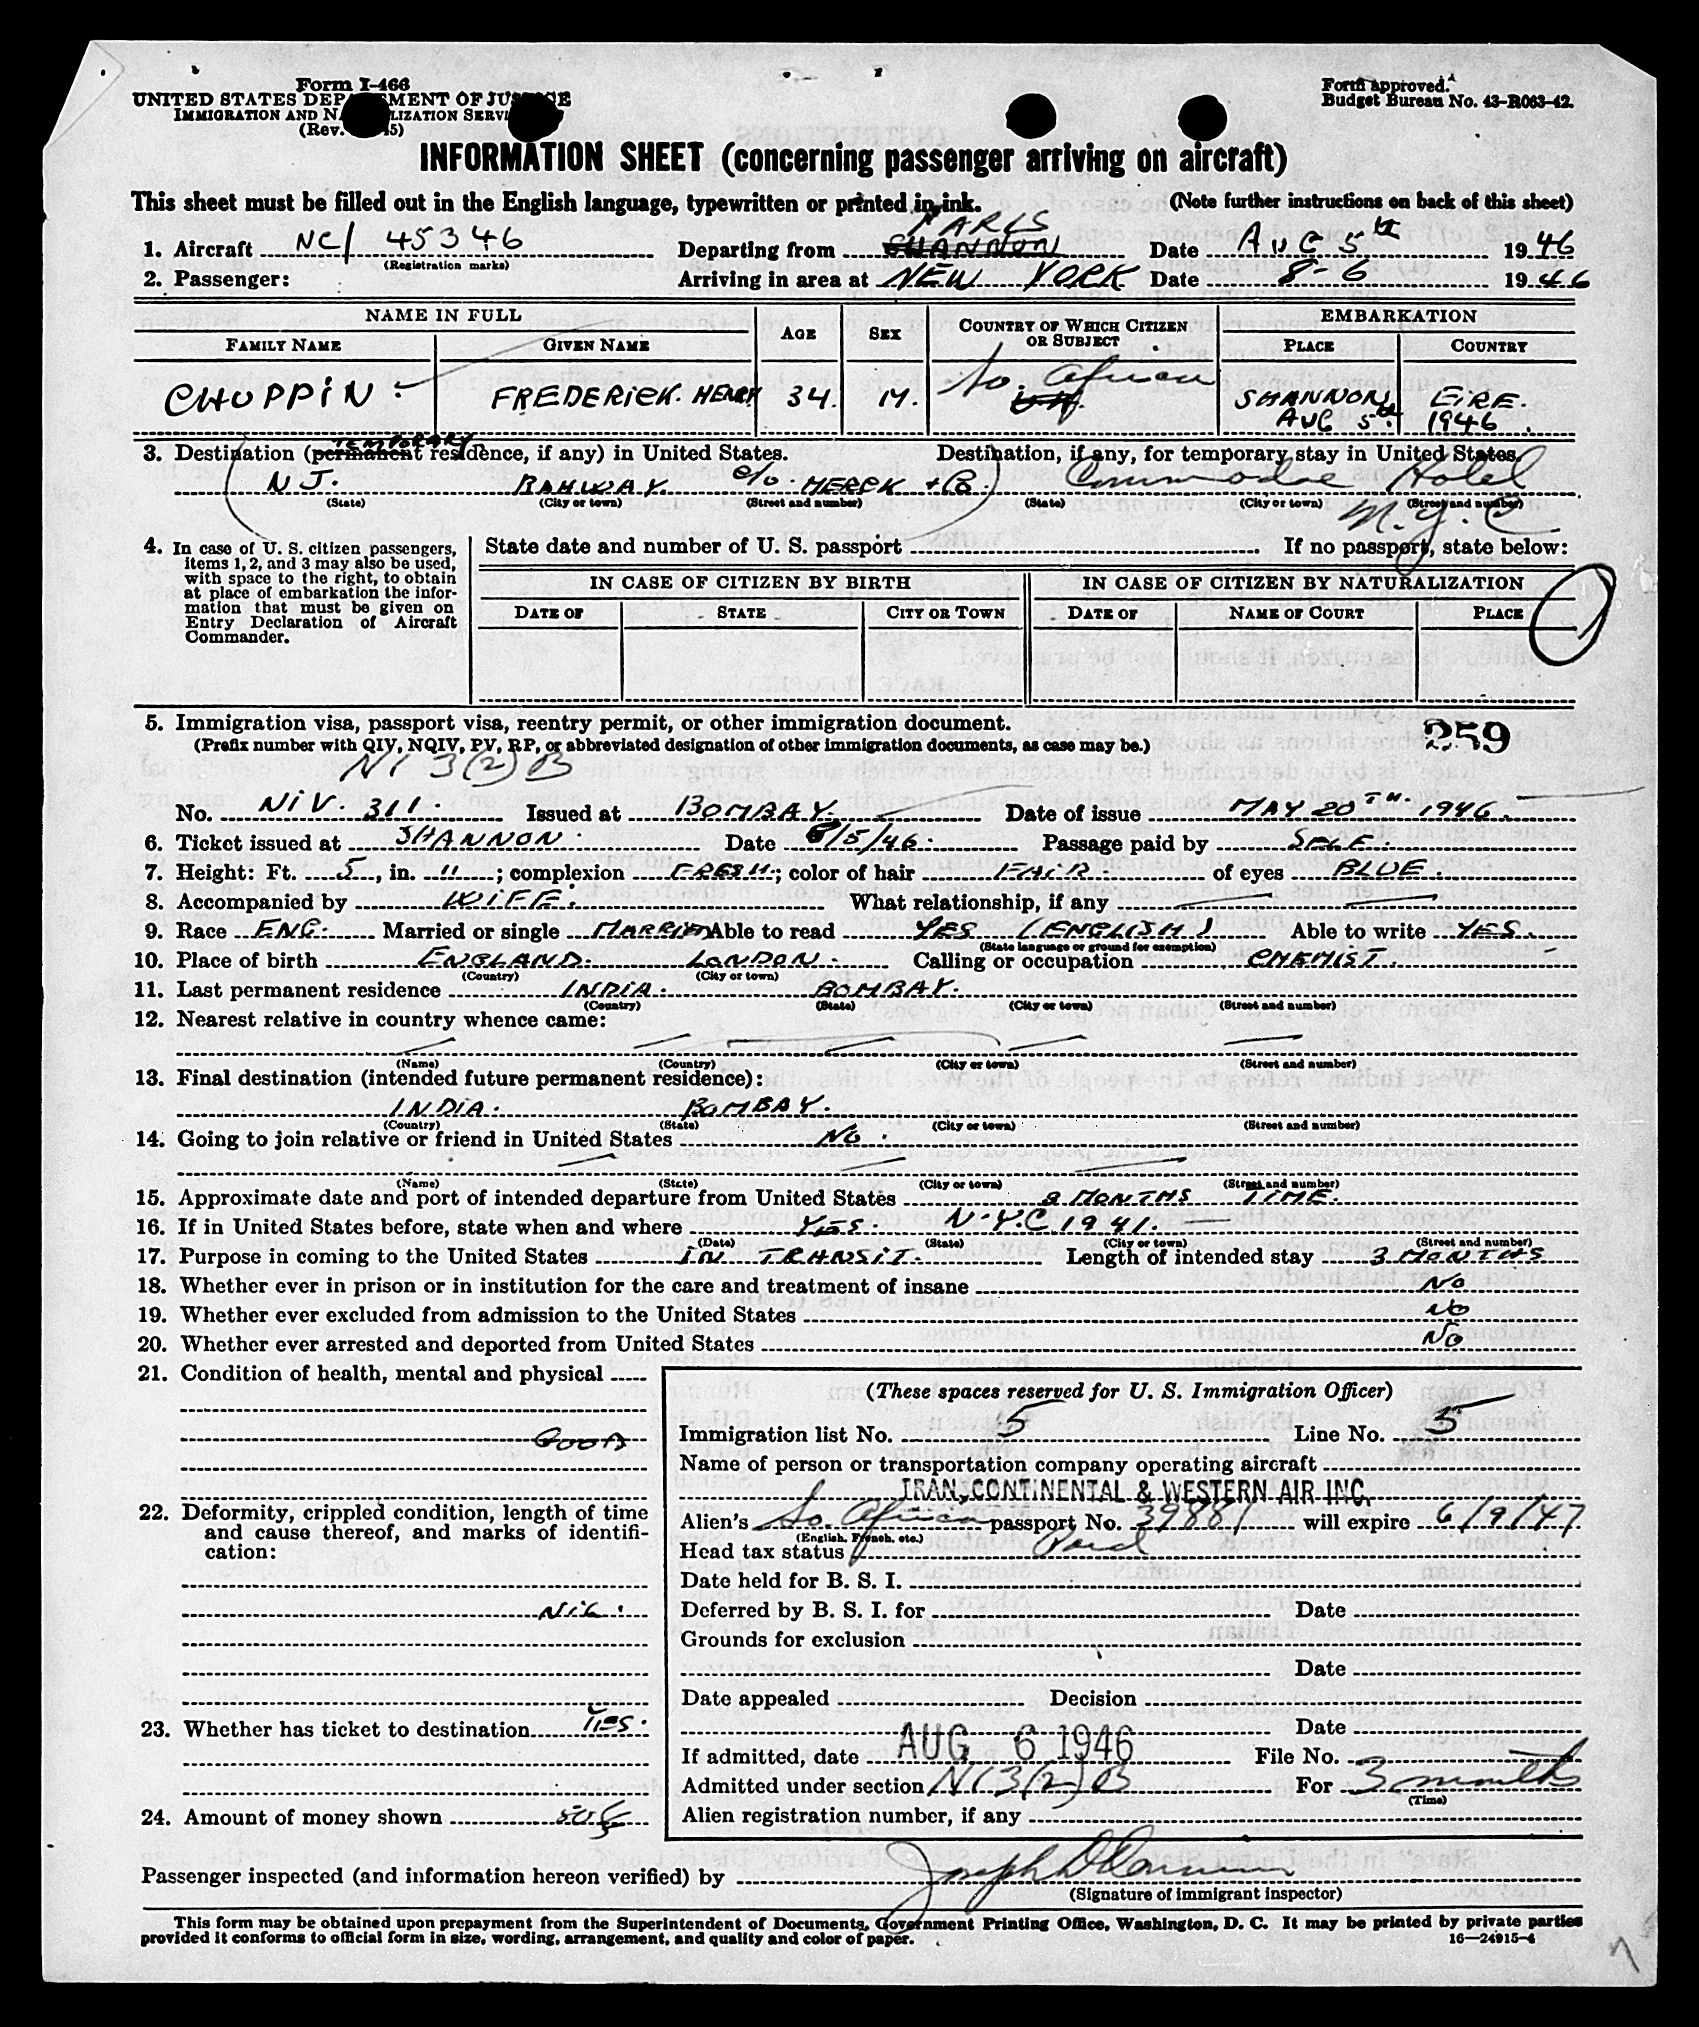 Form I-466
UNITED STATES DEPARTMENT OF JUSTICE
IMMIGRATION AND NATURALIZATION SERVICE
(Rev. 45)
Form approved.
Budget Bureau No. 43-R063-42.
INFORMATION SHEET (concerning passenger arriving on aircraft)
This sheet must be filled out in the English language, typewritten or printed in ink. (Note further instructions on back of this sheet)
PARIS
1. Aircraft NC/ 45346 Departing from SHANNON Date AUG 5th 1946
(Registration marks)
2. Passenger: Arriving in area at NEW YORK Date 8-6 1946
NAME IN FULL AGE SEX COUNTRY OF WHICH CITIZEN OR SUBJECT EMBARKATION
FAMILY NAME GIVEN NAME PLACE COUNTRY
CHOPPIN FREDERICK HENRY 34. M. So. Africa SHANNON AUG 5th EIRE. 1946.
TEMPORARY
3. Destination (permanent residence, if any) in United States. Destination, if any, for temporary stay in United States.
NJ. RAHWAY. c/o. MERCK + Co. Commodore Hotel
(State) (City or town) (Street and number) (State) (City or town) (Street and number)
N.Y.C
4. In case of U. S. citizen passengers, items 1, 2, and 3 may also be used, with space to the right, to obtain at place of embarkation the information that must be given on Entry Declaration of Aircraft Commander.
State date and number of U. S. passport If no passport, state below:
IN CASE OF CITIZEN BY BIRTH IN CASE OF CITIZEN BY NATURALIZATION
DATE OF STATE CITY OR TOWN DATE OF NAME OF COURT PLACE
5. Immigration visa, passport visa, reentry permit, or other immigration document. 259
(Prefix number with QIV, NQIV, PV, RP, or abbreviated designation of other immigration documents, as case may be.)
NI 3(2)B
No. NIV. 311. Issued at BOMBAY. Date of issue MAY 20TH. 1946.
6. Ticket issued at SHANNON. Date 8/5/46. Passage paid by SELF.
7. Height: Ft. 5, in. 11; complexion FRESH.; color of hair FAIR. of eyes BLUE.
8. Accompanied by WIFE. What relationship, if any
9. Race ENG. Married or single MARRIED Able to read YES (ENGLISH) Able to write YES.
(State language or ground for exemption)
10. Place of birth ENGLAND. LONDON. Calling or occupation CHEMIST.
(Country) (City or town)
11. Last permanent residence INDIA. BOMBAY.
(Country) (State) (City or town) (Street and number)
12. Nearest relative in country whence came:
(Name) (Country) (City or town) (Street and number)
13. Final destination (intended future permanent residence):
INDIA. BOMBAY.
(Country) (State) (City or town) (Street and number)
14. Going to join relative or friend in United States No.
(Name) (State) (City or town) (Street and number)
15. Approximate date and port of intended departure from United States 3 MONTHS TIME.
16. If in United States before, state when and where YES. N.Y.C 1941.
(Date) (State) (City or town) (Street and number)
17. Purpose in coming to the United States IN TRANSIT. Length of intended stay 3 MONTHS
18. Whether ever in prison or in institution for the care and treatment of insane No
19. Whether ever excluded from admission to the United States No
20. Whether ever arrested and deported from United States No
21. Condition of health, mental and physical
GOOD
22. Deformity, crippled condition, length of time and cause thereof, and marks of identification:
NIL.
23. Whether has ticket to destination YES.
24. Amount of money shown
(These spaces reserved for U. S. Immigration Officer)
Immigration list No. 5 Line No. 5
Name of person or transportation company operating aircraft
TRANSCONTINENTAL & WESTERN AIR INC.
Alien's So. African passport No. 39881 will expire 6/9/47
(English, French, etc.)
Head tax status Paid
Date held for B. S. I.
Deferred by B. S. I. for Date
Grounds for exclusion
Date
Date appealed Decision
Date
If admitted, date AUG 6 1946 File No.
Admitted under section NI 3(2)B For 3 months
(Time)
Alien registration number, if any
Passenger inspected (and information hereon verified) by
(Signature of immigrant inspector)
This form may be obtained upon prepayment from the Superintendent of Documents, Government Printing Office, Washington, D. C. It may be printed by private parties
provided it conforms to official form in size, wording, arrangement, and quality and color of paper. 16—24915-4